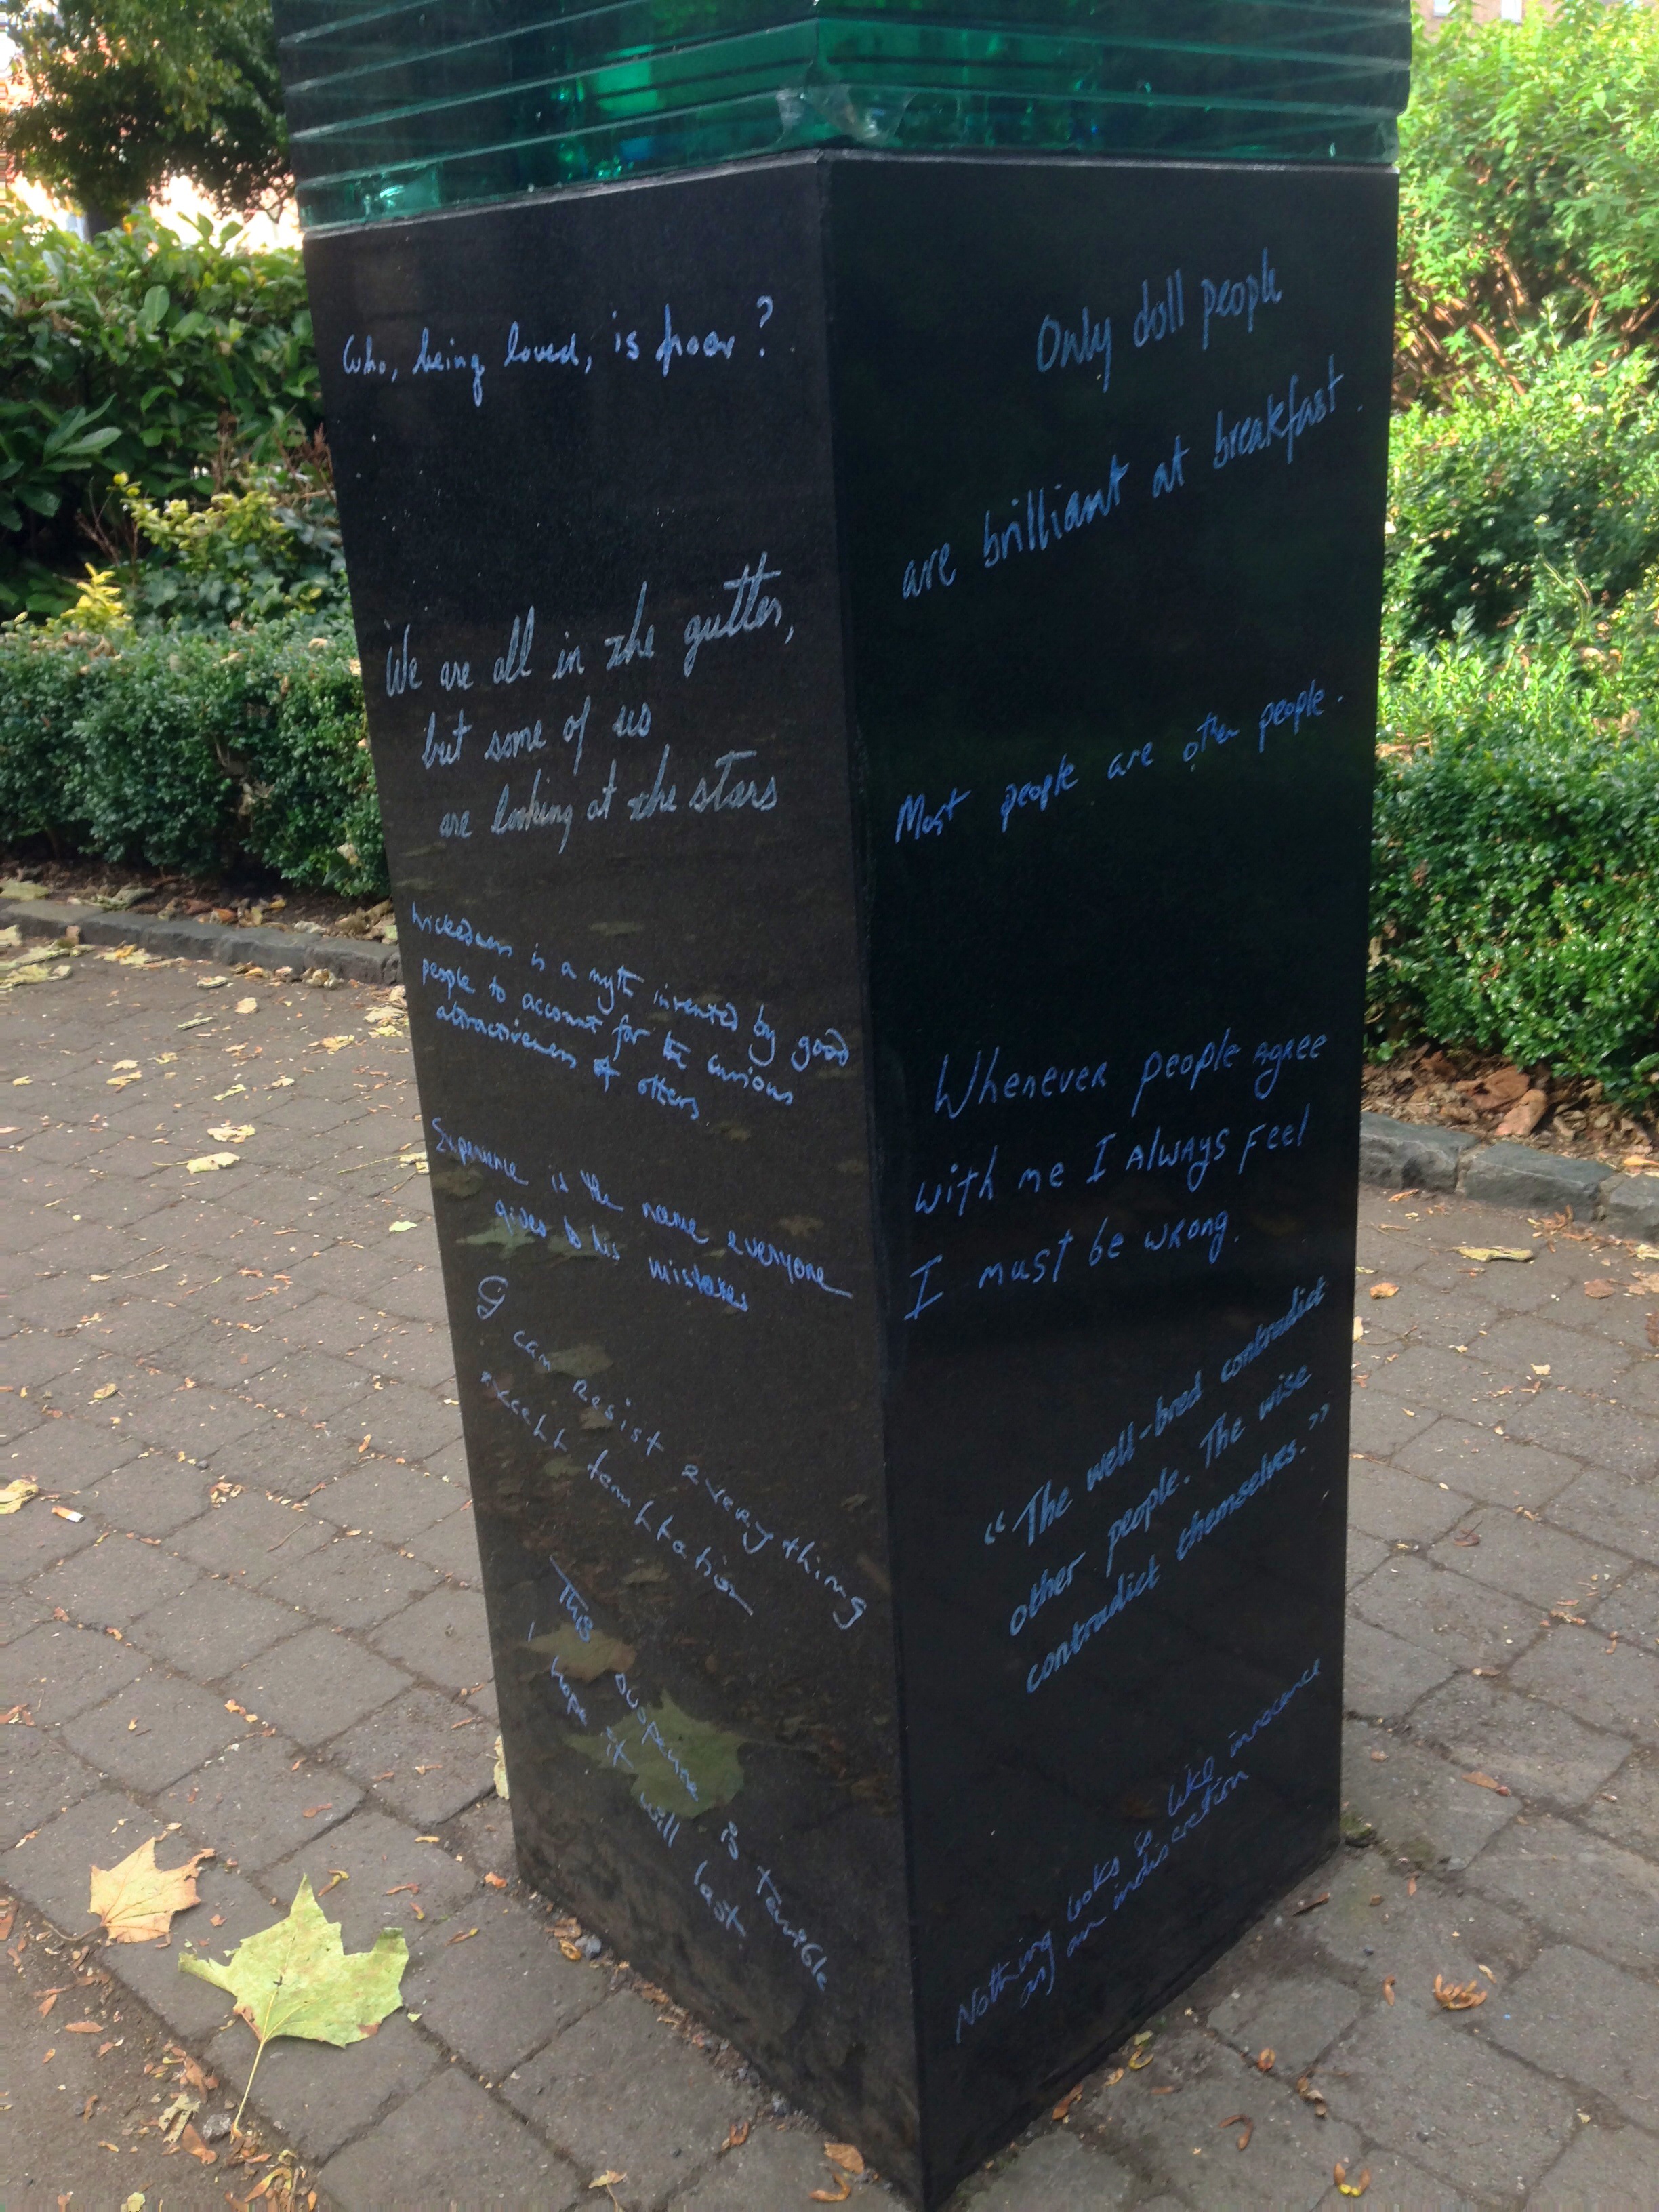 Who, being loved, is poor?
We are all in the gutter,
but some of us
are looking at the stars
Wickedness is a myth invented by good
people to account for the curious
attractiveness of others.
Experience is the name everyone
gives to his mistakes
I can resist everything
except temptation
This suspense is terrible
I hope it will last.
Only dull people
are brilliant at breakfast.
Most people are other people.
Whenever people agree
with me I always feel
I must be wrong.
“The well-bred contradict
other people. The wise
contradict themselves.”
Nothing looks so like innocence
as an indiscretion